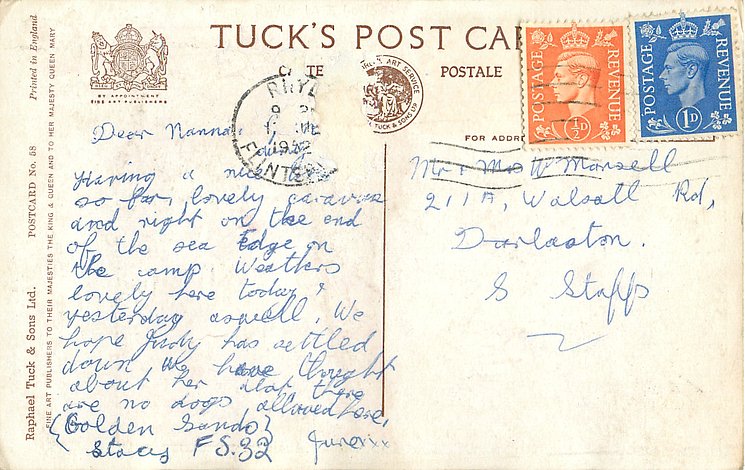 TUCK'S POST CAR
POSTALE
FOR ADDR
Printed in England
POSTCARD No. 58
Raphael Tuck & Sons Ltd.
FINE ART PUBLISHERS TO THEIR MAJESTIES THE KING & QUEEN AND TO HER MAJESTY QUEEN MARY
BY APPOINTMENT
FINE ART PUBLISHERS
POSTAGE REVENUE
½D
POSTAGE REVENUE
1D
RHYL
1952
FLINTS
Dear Nanna
Having a nice
so far, lovely caravan
and right on the end
of the sea Edge on
the camp. Weathers
lovely here today &
yesterday aswell. We
hope Judy has settled
down We have thought
about her alot there
are no dogs allowed here,
{Golden Sands}
Stacy FS.32 June xx
Mr & Mrs W Marsell
211A, Walsall Rd,
Darlaston.
S Staffs